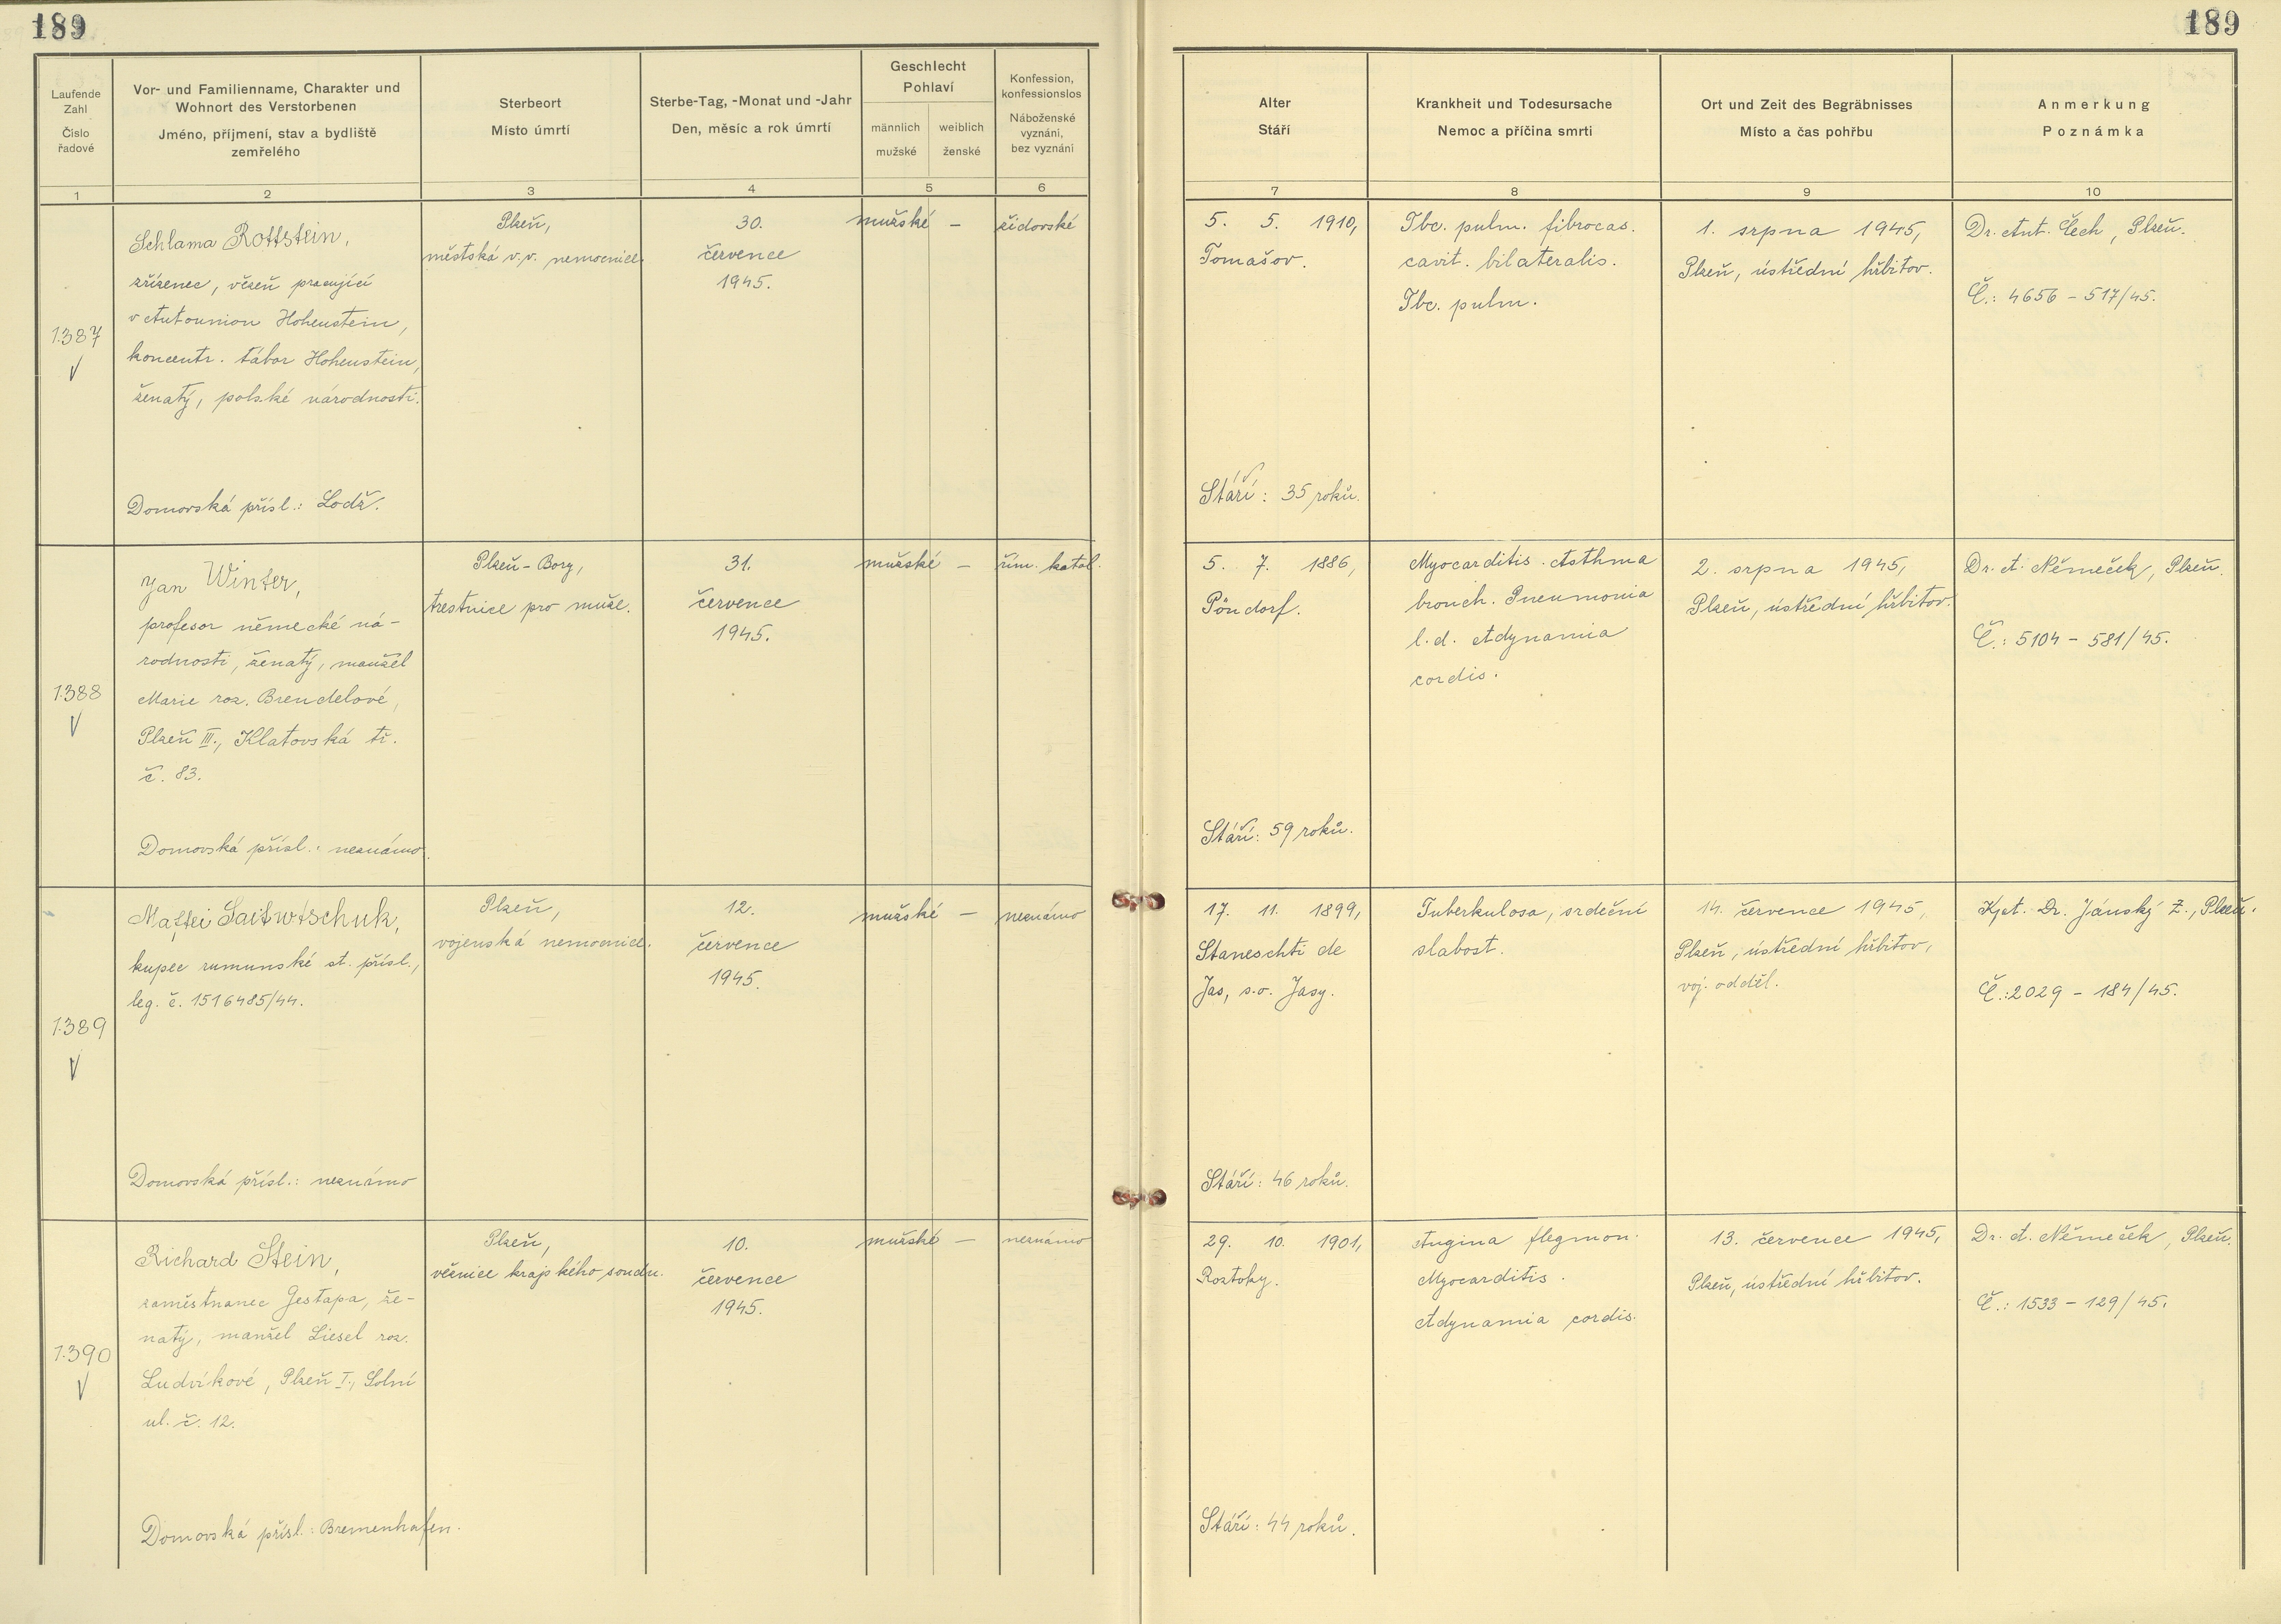 189
189
Laufende Zahl
Číslo řadové
Vor- und Familienname, Charakter und
Wohnort des Verstorbenen
Jméno, příjmení, stav a bydliště
zemřelého
Sterbeort
Místo úmrtí
Sterbe-Tag, -Monat und -Jahr
Den, měsíc a rok úmrtí
Geschlecht
Pohlaví
männlich
mužské
weiblich
ženské
Konfession,
konfessionslos
Náboženské
vyznání,
bez vyznání
Alter
Stáří
Krankheit und Todesursache
Nemoc a příčina smrti
Ort und Zeit des Begräbnisses
Místo a čas pohřbu
Anmerkung
Poznámka
1
2
3
4
5
6
7
8
9
10
1.387
Schlama Rottstein,
zřízenec, vězeň pracující
v Autounion Hohenstein,
koncentr. tábor Hohenstein,
ženatý, polské národnosti.
Domovská přísl.: Lodž.
Plzeň,
městská v.v. nemocnice.
30.
července
1945.
mužské —
židovské
5. 5. 1910,
Tomašov.
Stáří: 35 roků.
Tbc. pulm. fibrocas.
cavit. bilateralis.
Tbc. pulm.
1. srpna 1945,
Plzeň, ústřední hřbitov.
Dr. Ant. Čech, Plzeň.
Č.: 4656 – 517/45.
1.388
Jan Winter,
profesor německé ná-
rodnosti, ženatý, manžel
Marie roz. Brendelové,
Plzeň III., Klatovská tř.
č. 83.
Domovská přísl.: neznámo.
Plzeň – Bory,
trestnice pro muže.
31.
července
1945.
mužské —
řím. katol.
5. 7. 1886,
Pöndorf.
Stáří: 59 roků.
Myocarditis. Asthma
bronch. Pneumonia
l.d. Adynamia
cordis.
2. srpna 1945,
Plzeň, ústřední hřbitov.
Dr. A. Němeček, Plzeň.
Č.: 5104 – 581/45.
1.389
Maftei Saitwtschuk,
kupec rumunské st. přísl.,
leg. č. 1516485/44.
Domovská přísl.: neznámo
Plzeň,
vojenská nemocnice.
12.
července
1945.
mužské —
neznámo
17. 11. 1899,
Staneschti de
Jas, s.o. Jasy.
Stáří: 46 roků.
Tuberkulosa, srdeční
slabost.
14. července 1945,
Plzeň, ústřední hřbitov,
voj. odděl.
Kpt. Dr. Jánský Z., Plzeň.
Č.: 2029 – 184/45.
1.390
Richard Stein,
zaměstnanec Gestapa, že-
natý, manžel Liesel roz.
Ludvíkové, Plzeň I., Solní
ul. č. 12.
Domovská přísl.: Bremenhafen.
Plzeň,
věznice krajského soudu.
10.
července
1945.
mužské —
neznámo
29. 10. 1901,
Roztoky.
Stáří: 44 roků.
Angina flegmon.
Myocarditis.
Adynamia cordis.
13. července 1945,
Plzeň, ústřední hřbitov.
Dr. A. Němeček, Plzeň.
Č.: 1533 – 129/45.